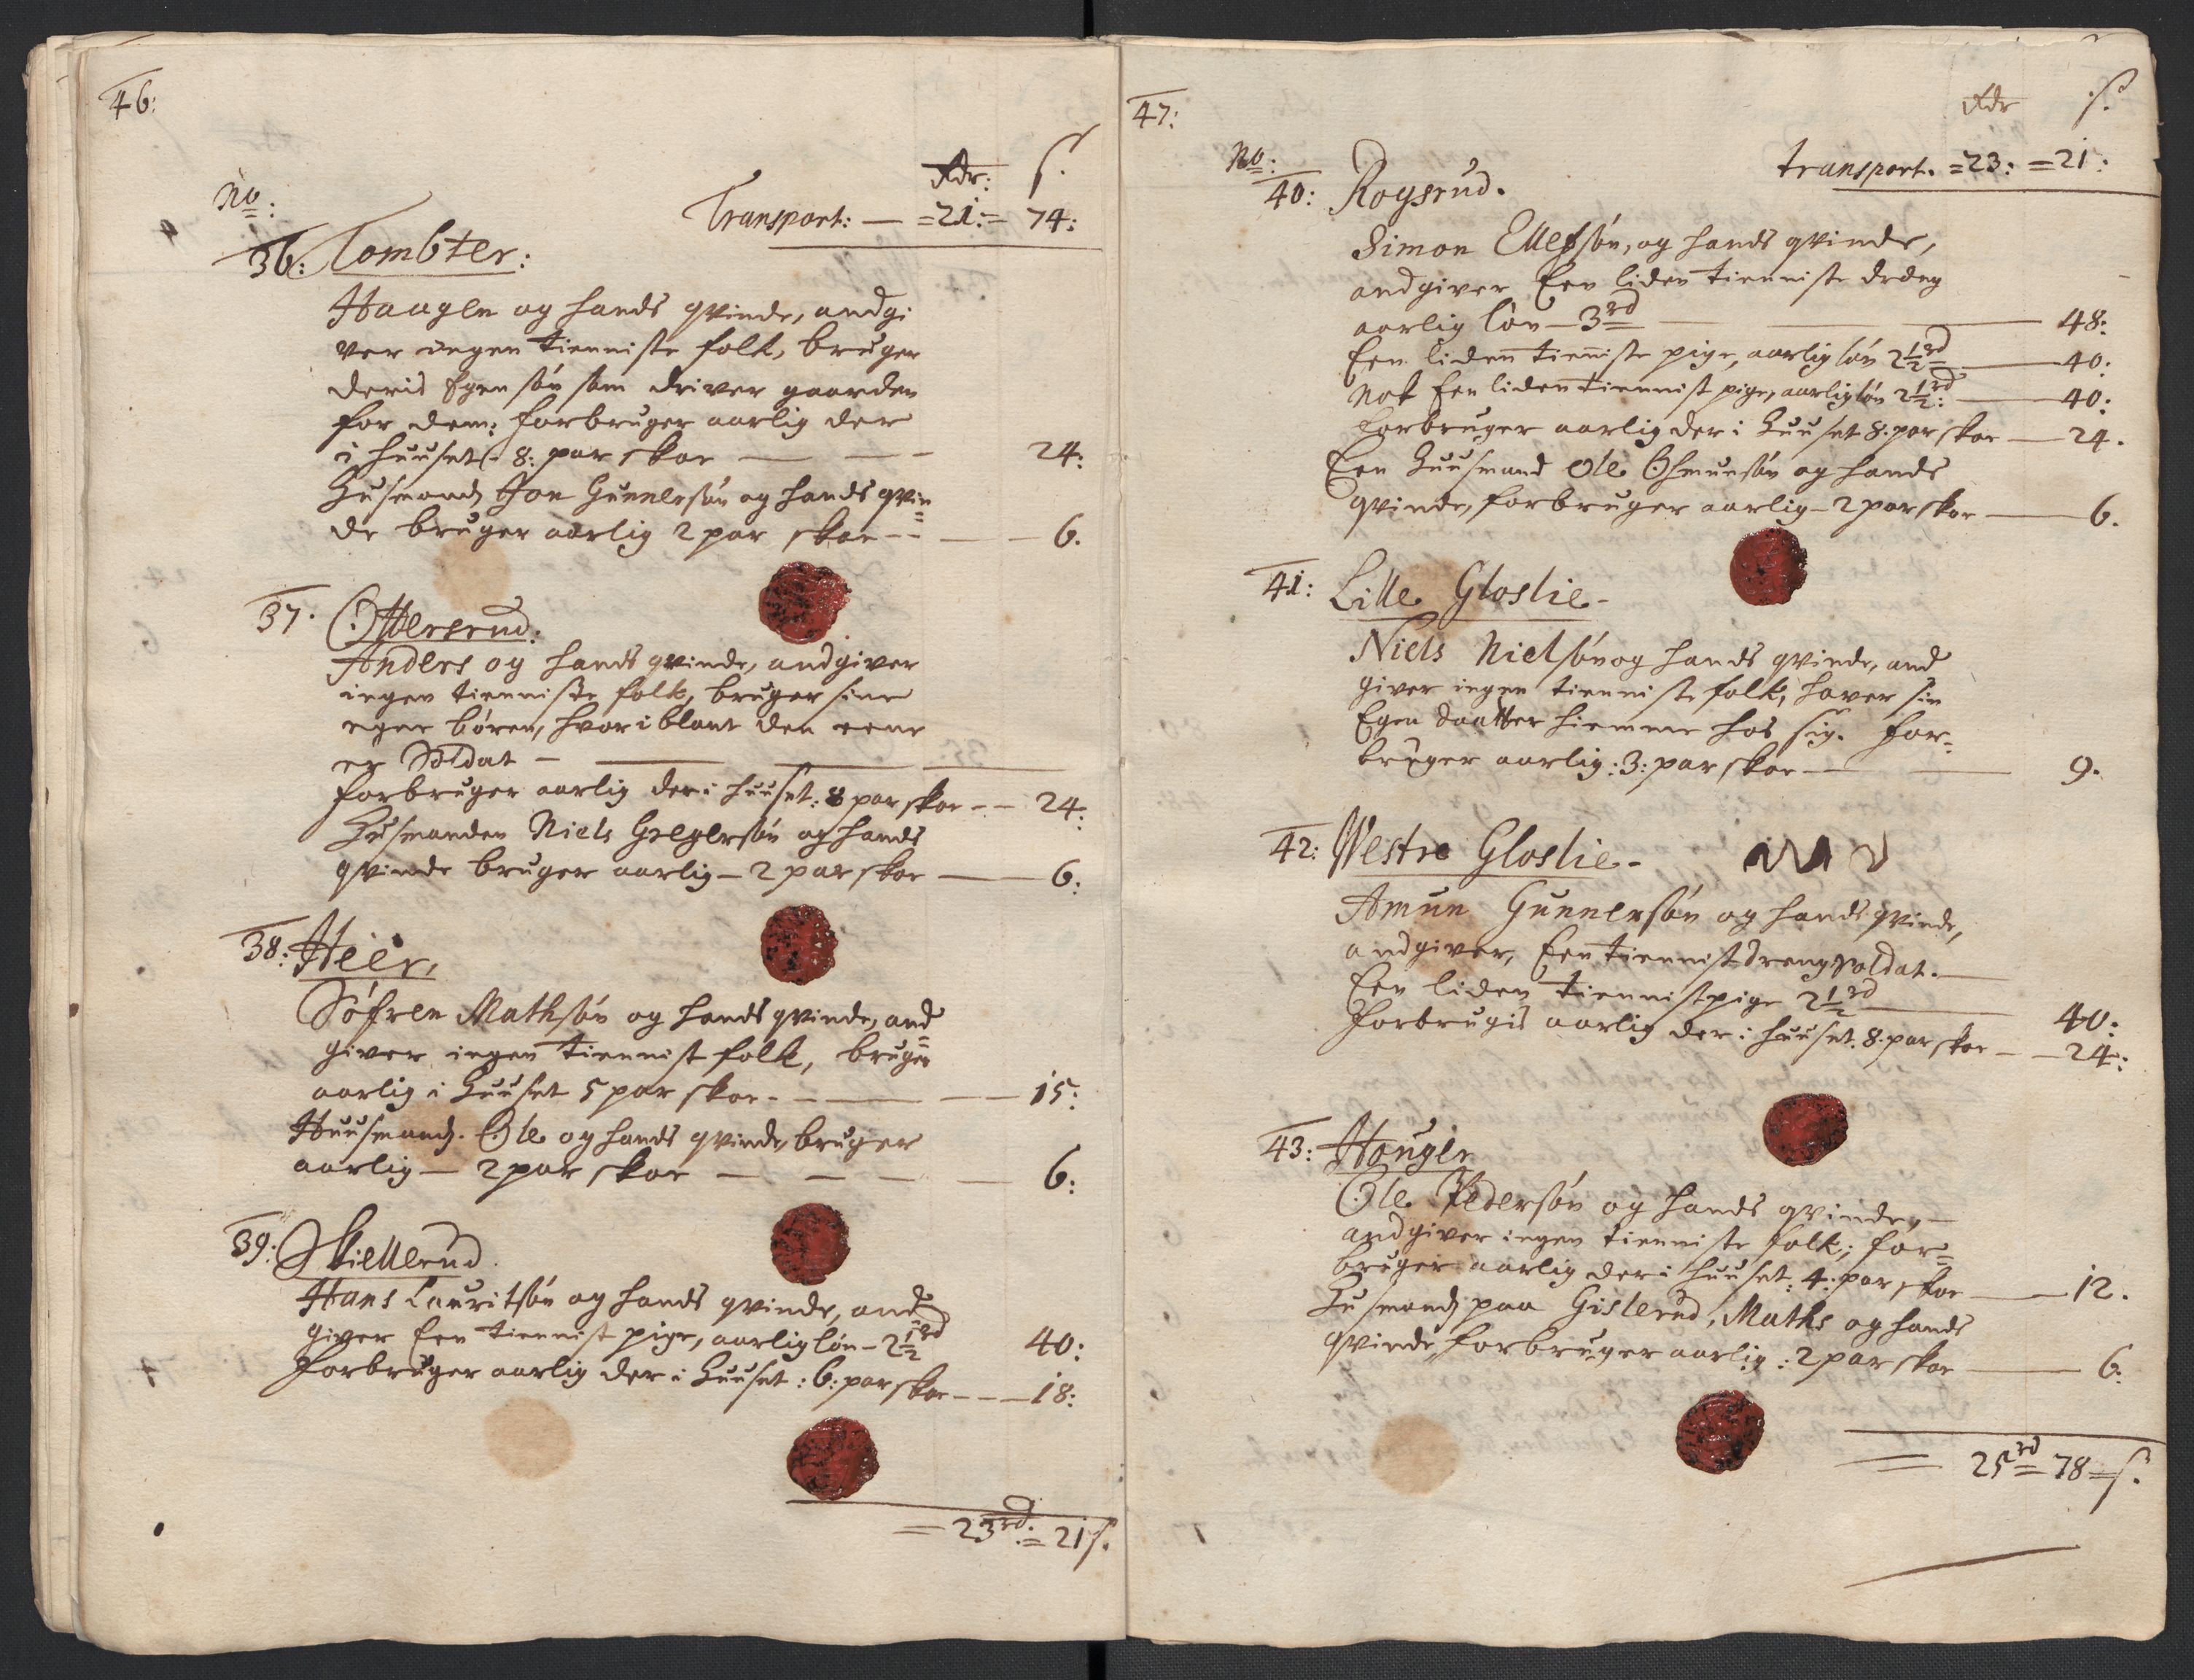 46:
Rdr: s.
No: Transport: — = 21: = 74:
36: Tombter:
Haagen og hands qvinde, andgi
ver ingen tienniste folk, bruger
deris Egen søn som driver gaarden
for dem: forbruger aarlig der
i huuset - 8: par skoe — — - 24:
Husmand Jon Gunnersøn og hands qvin=
de bruger aarlig 2 par skoe - - — 6.
37. Ottersrud:
Anders og hands qvinde, andgiver
ingen tienniste folk, bruger sine
egne børen, hvor i blant den eene
er Soldat —
forbruger aarlig der i huuset: 8 par skoe - - 24:
Husmanden Niels Gregersøn og hands
qvinde bruger aarlig — 2 par skoe — 6:
38: Heer,
Søfren Mathsøn og hands qvinde, and=
giver ingen tiennist folk, bruger
aarlig i Huuset 5 par skoe - — 15:
Huusmand. Ole og hands qvinde, bruger
aarlig — 2 par skoe — — — 6:
39: Skiellerud.
Hans Lauritsøn og hands qvinde, and
giver Een tiennist pige, aarlig løn - 2½ rd 40:
Forbruger aarlig der i Huuset: 6: par skoe - - - 18:
= 23 rd: = 21 s.
47:
Rdr s.
No: transport. = 23: = 21:
40: Rogsrud.
Simon Ellefsøn, og hands qvinde,
andgiver Een liden tienniste dreng
aarlig løn — 3 rd — 48:
Een liden tienniste pige, aarlig løn 2½ rd — 40:
Nok Een liden tiennist pige, aarlig løn 2½ rd: — 40:
forbruger aarlig der i Huuset 8. par skoe — 24.
Een Huusmand Ole Osmunsøn og hands
qvinde, forbruger aarlig — 2 par skoe — 6.
41: Lille Gloslie -
Niels Nielsøn og hands qvinde, and
giver ingen tienniste folk, haver sin
Egen daatter hiemme hos sig. for=
bruger aarlig: 3: par skoe — 9.
42: Westre Gloslie -
Amun Gunnersøn og hands qvinde,
andgiver, Een tiennist dreng soldat. —
Een liden tiennist pige 2½ rd — 40:
Forbrugis aarlig der i huuset. 8. par skoe — - 24:
43: Hougen
Ole Pedersøn og hands qvinde, —
andgiver ingen tienniste folk; for=
bruger aarlig der i huuset: 4: par skoe — 12.
Husmand paa Gislerud, Maths og hands
qvinde, forbruger aarlig: 2 par skoe — 6:
= 25 rd = 78 = s.